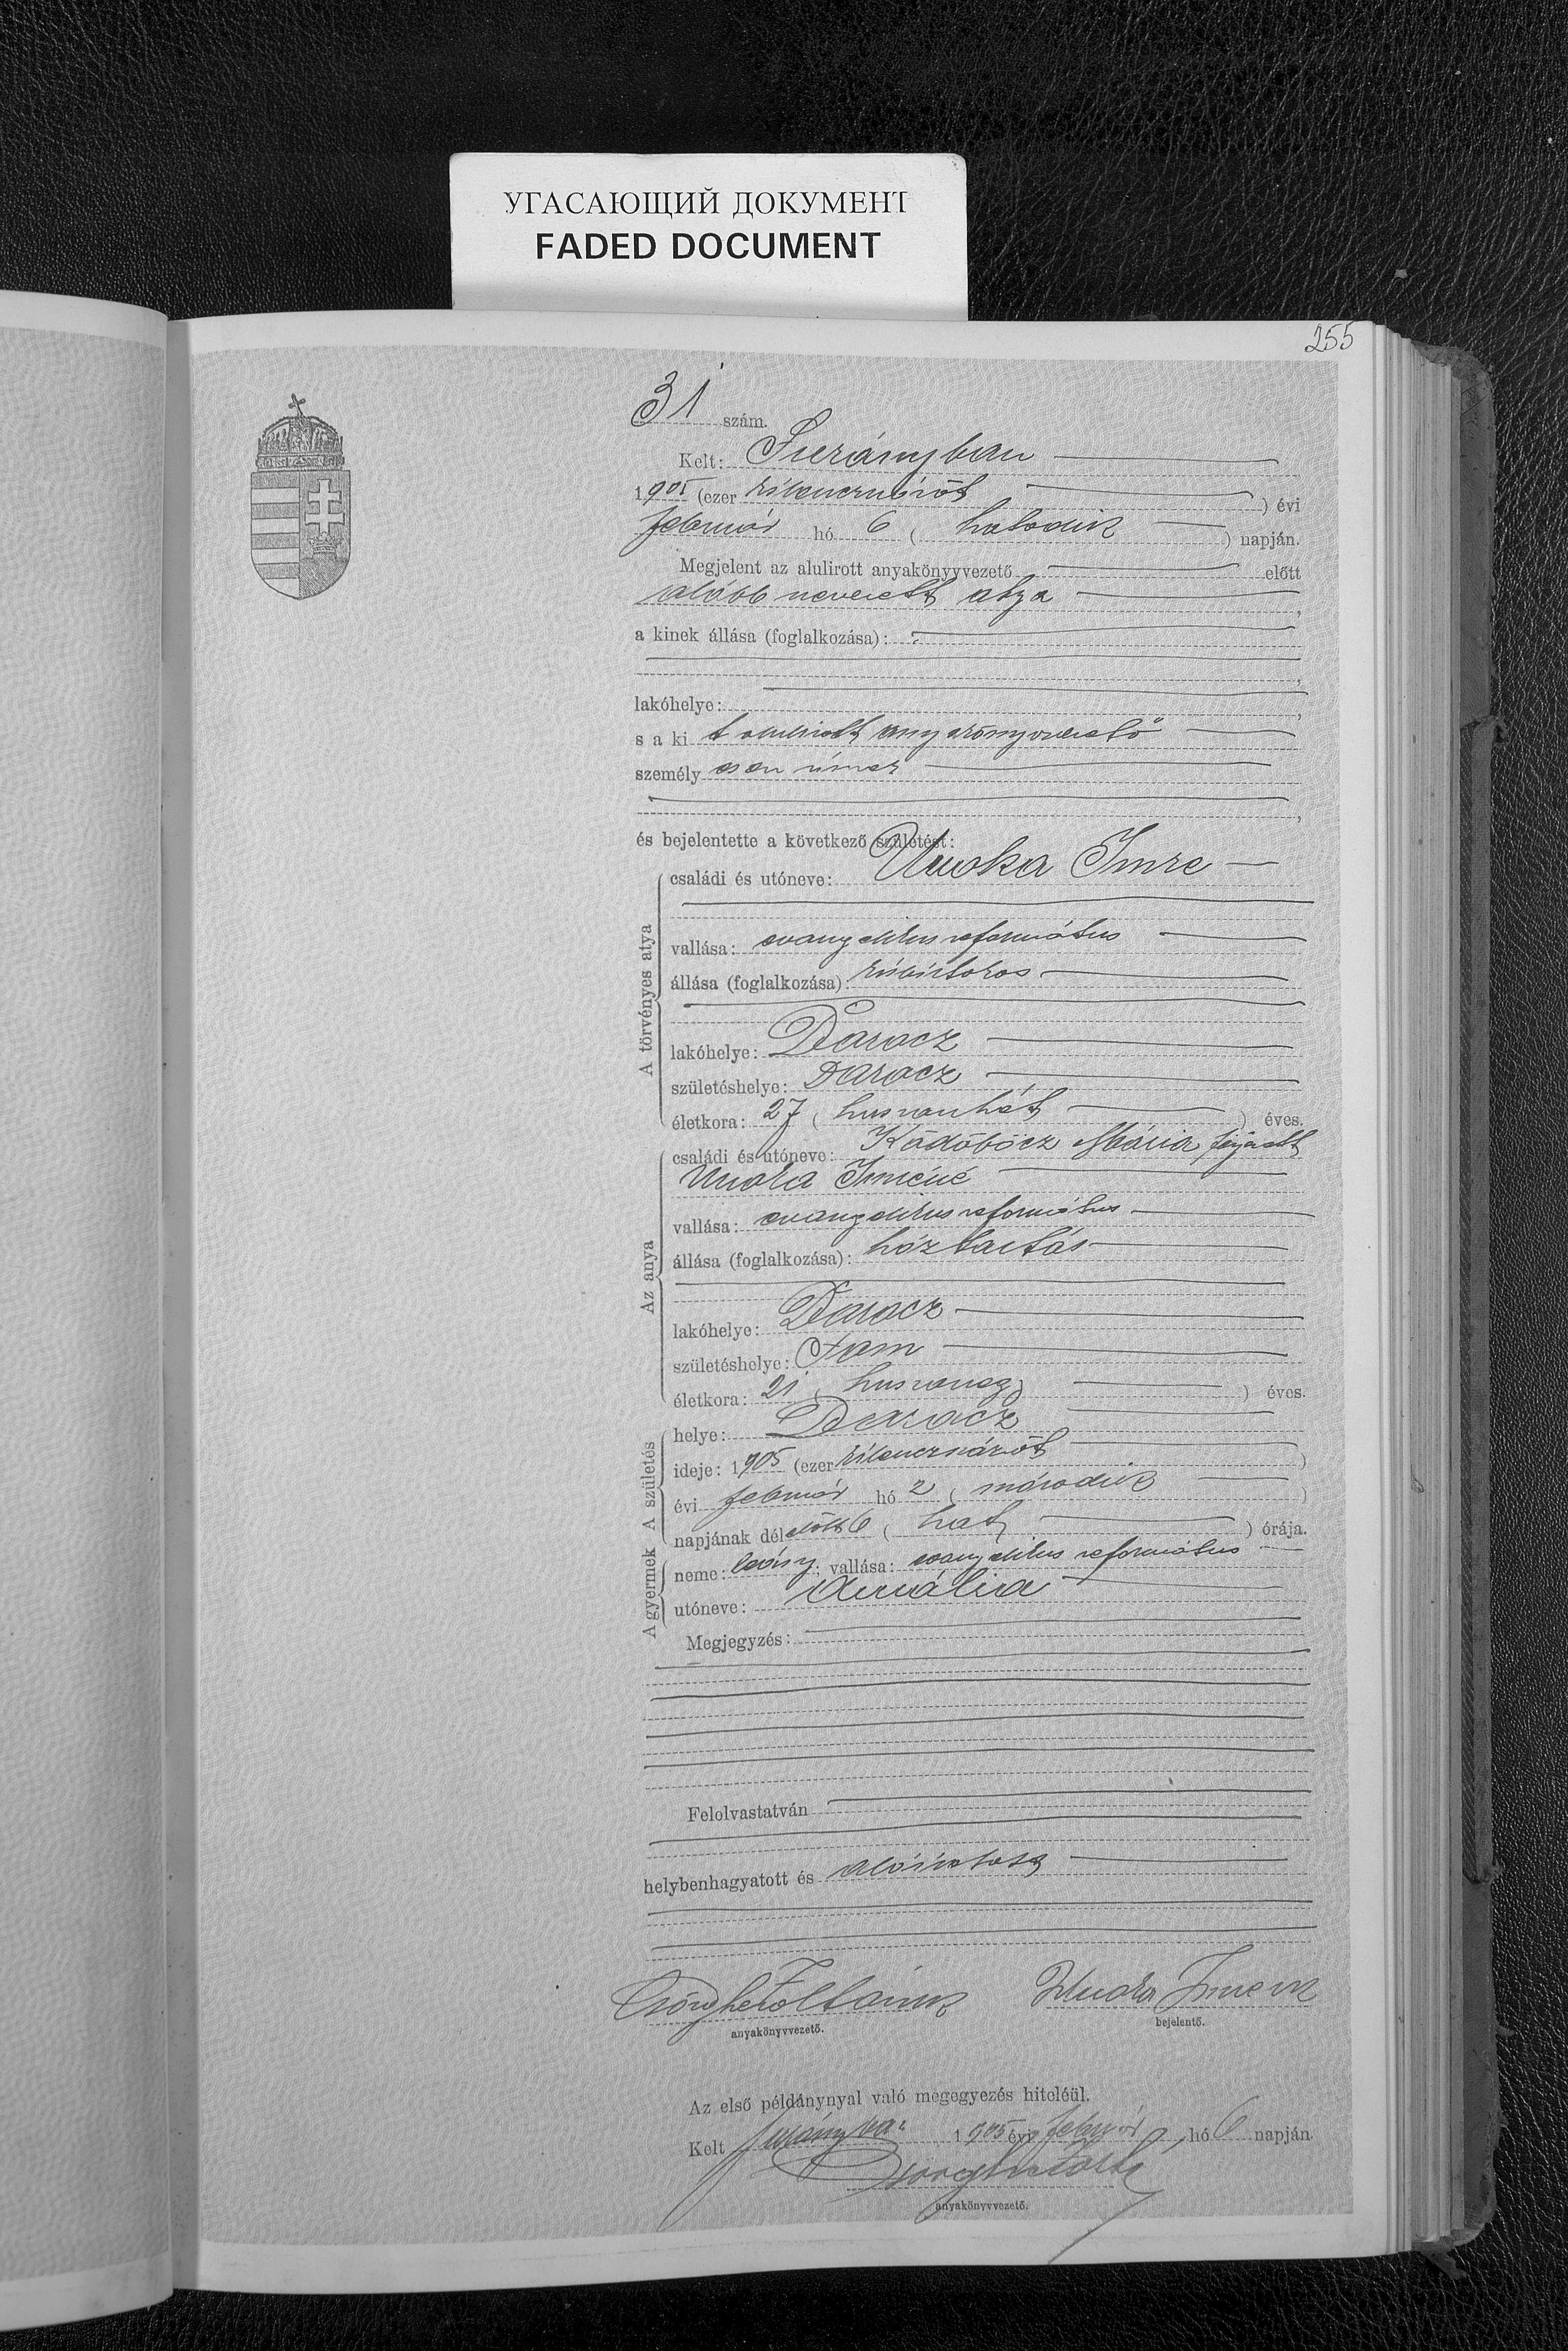 УГАСАЮЩИЙ ДОКУМЕНТ
FADED DOCUMENT
255
31 szám.
Kelt: Surányban
1905 (ezer kilenczszázöt ) évi
február hó 6 ( hatodik ) napján.
Megjelent az alulirott anyakönyvvezető előtt
alább nevezett atya ,
a kinek állása (foglalkozása):
,
lakóhelye: ,
s a ki t alulirott anyakönyvvezető
személy esen ismer
,
és bejelentette a következő születést:
A törvényes atya
családi és utóneve: Unoka Imre
vallása: evangelikus református
állása (foglalkozása): kisbirtokos
lakóhelye: Darócz
születéshelye: Darócz
életkora: 27 ( huszonhét ) éves.
Az anya
családi és utóneve: Ködöböcz Mária férjezett
Unoka Imréné
vallása: evangelikus református
állása (foglalkozása): háztartás
lakóhelye: Darócz
születéshelye:
életkora: 21 ( huszonegy ) éves.
A születés
helye: Darócz
ideje: 1905 (ezer kilenczszázöt )
évi február hó 2 ( második )
napjának délelőtt 6 ( hat ) órája.
A gyermek
neme: leány; vallása: evangelikus református
utóneve: Amália
Megjegyzés:
Felolvastatván
helybenhagyatott és aláiratott
anyakönyvvezető.
Unoka Imre
bejelentő.
Az első példánynyal való megegyezés hiteléül.
Kelt Surányban 1905 évi február hó 6 napján
anyakönyvvezető.